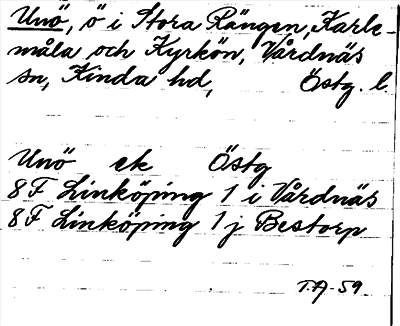 Unö, ö i Stora Rängen, Karle-
måla och Kyrkön, Vårdnäs
sn, Kinda hd, Östg. l.
Unö ek Östg
8F Linköping 1 i Vårdnäs
8F Linköping 1 j Bestorp
T.A-59